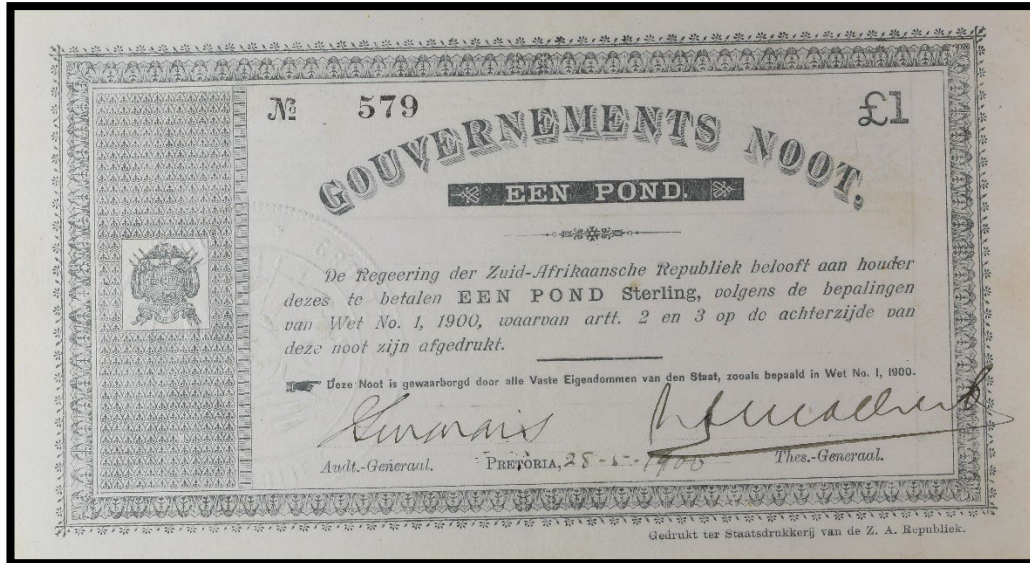 № 579 £1
GOUVERNEMENTS NOOT,
EEN POND.
De Regeering der Zuid-Afrikaansche Republiek belooft aan houder
dezes te betalen EEN POND Sterling, volgens de bepalingen
van Wet No. 1, 1900, waarvan artt. 2 en 3 op de achterzijde van
deze noot zijn afgedrukt.
Deze Noot is gewaarborgd door alle Vaste Eigendommen van den Staat, zooals bepaald in Wet No. 1, 1900.
Audt.-Generaal. PRETORIA, 28-5-1900 Thes.-Generaal.
Gedrukt ter Staatsdrukkerij van de Z. A. Republiek.